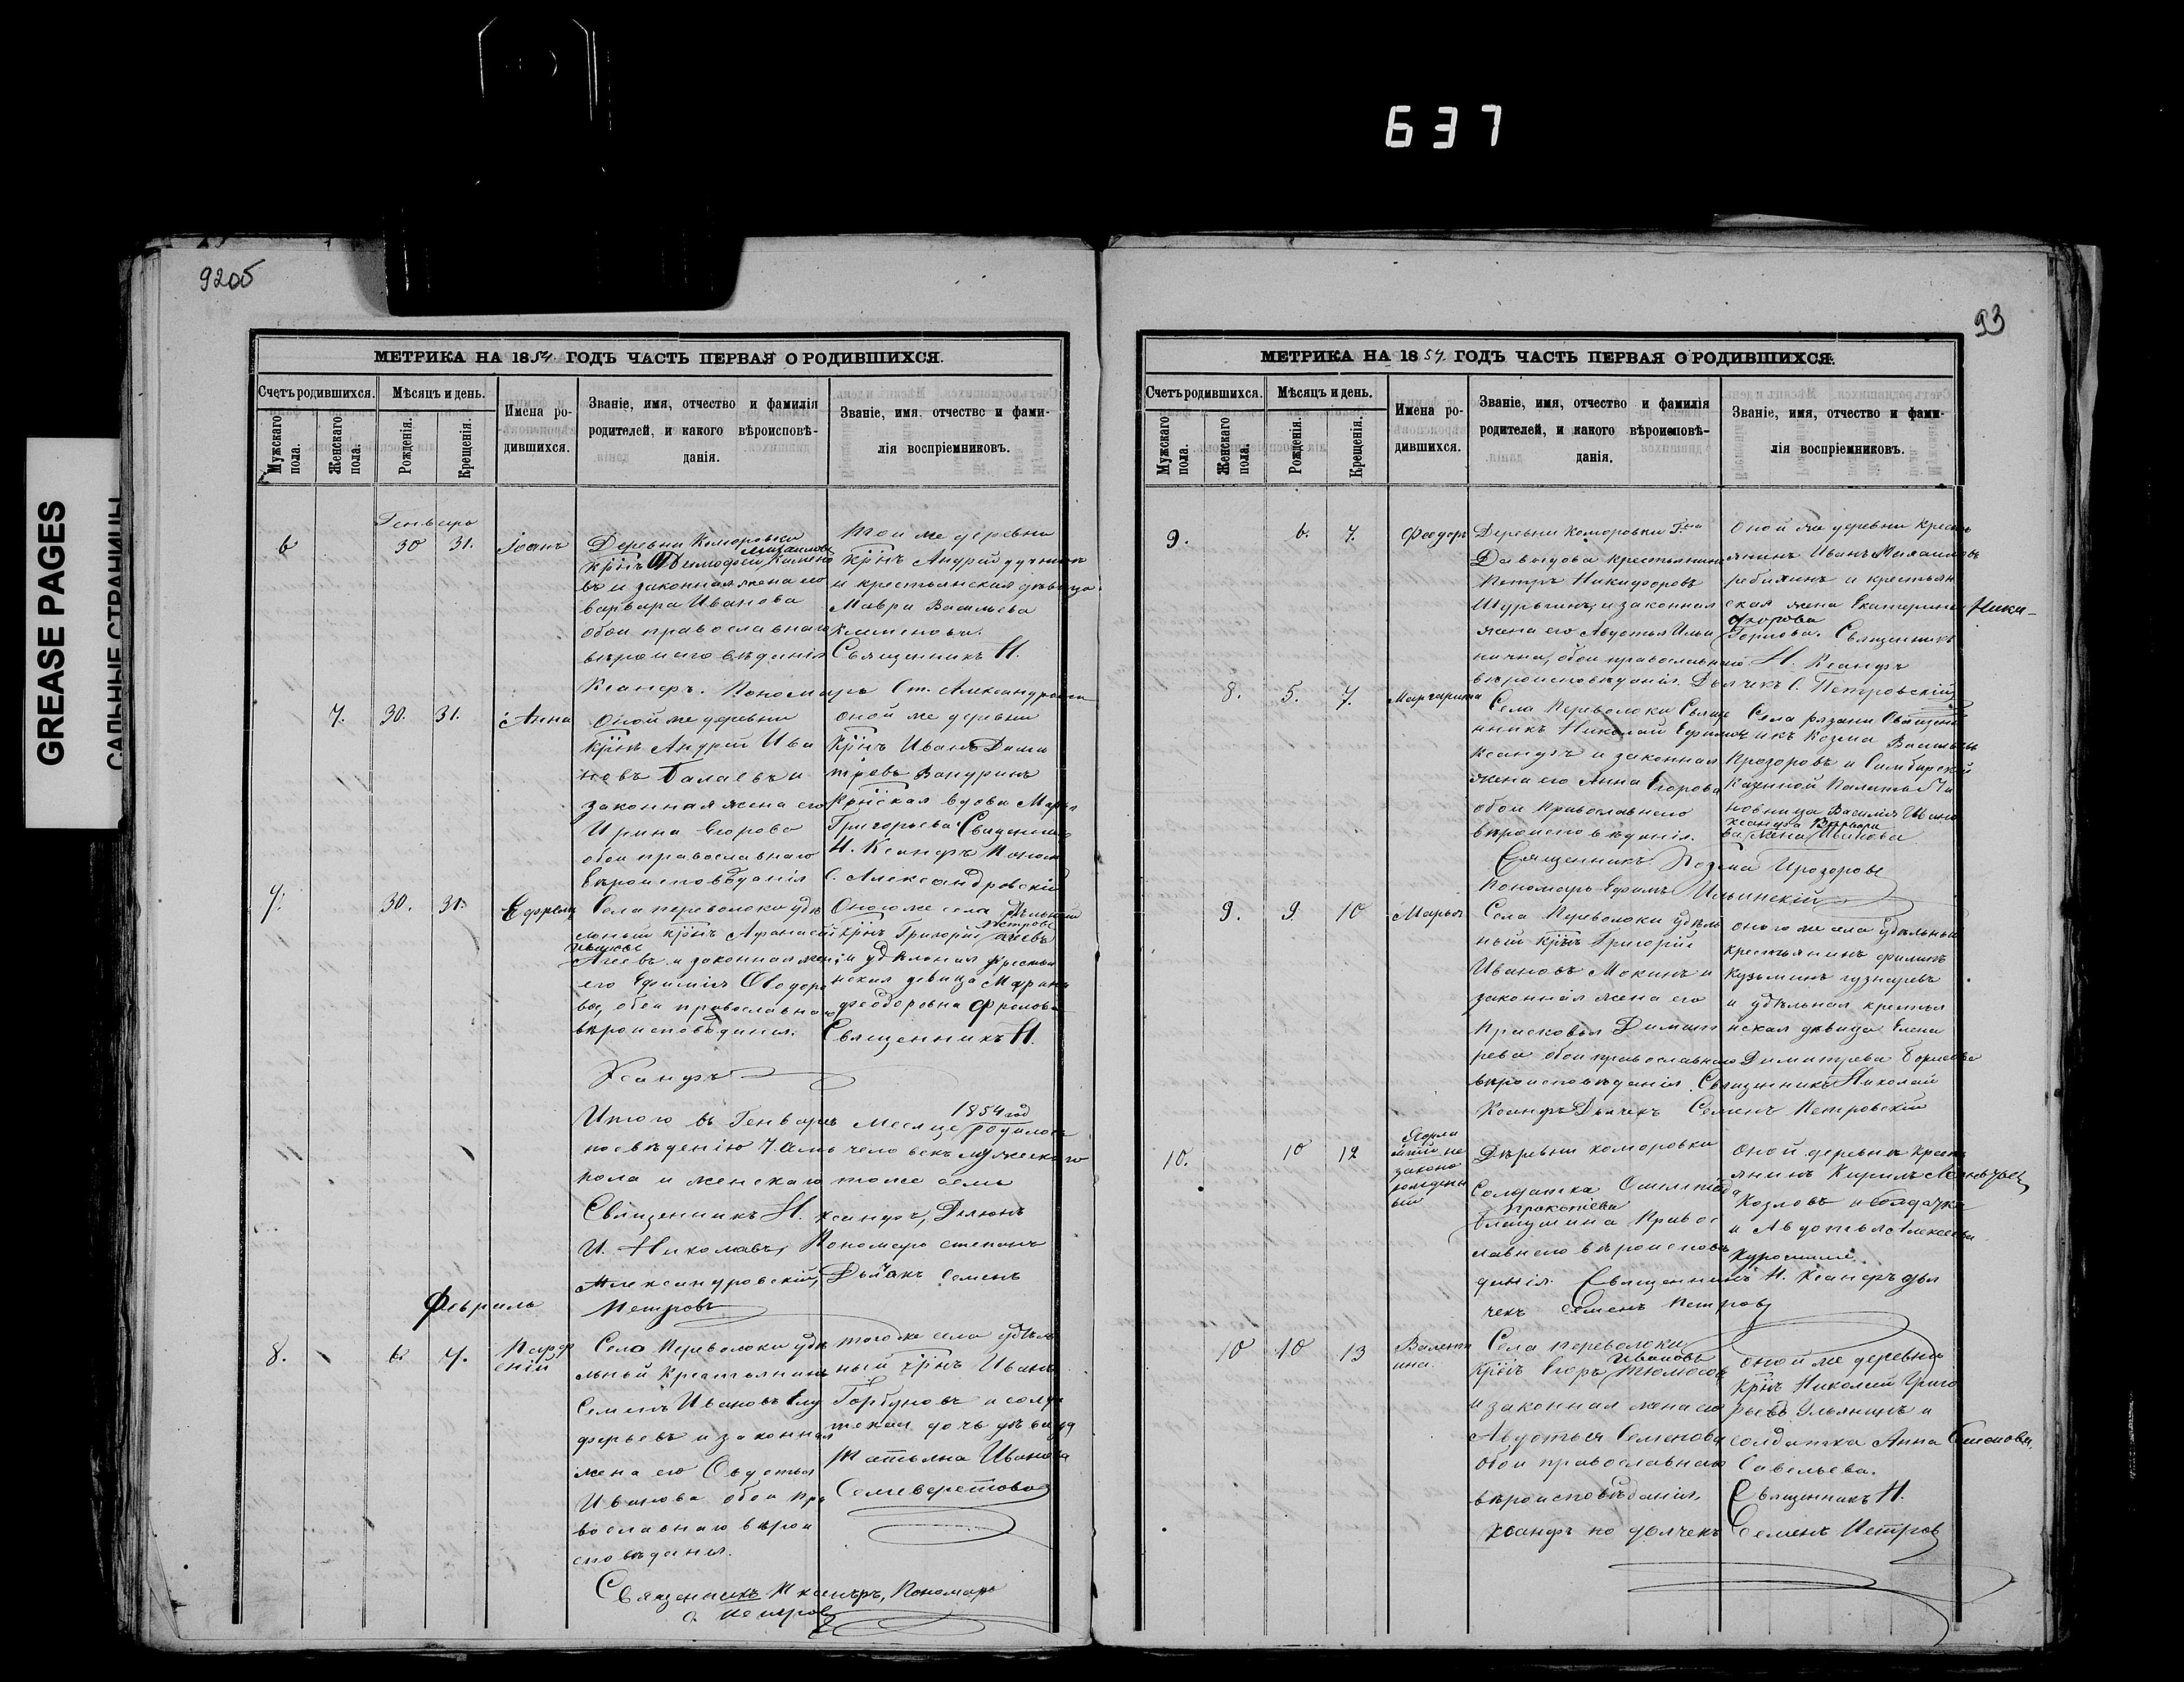 637
GREASE PAGES
САЛЬНЫЕ СТРАНИЦЫ
92об
МЕТРИКА НА 1854. ГОДЪ ЧАСТЬ ПЕРВАЯ О РОДИВШИХСЯ.
Счетъ родившихся.
Мѣсяцъ и день.
Имена родившихся.
Званіе, имя, отчество и фамилія
родителей, и какого вѣроисповѣ-
данія.
Званіе, имя. отчество и фами-
лія воспріемниковъ.
Мужскаго пола.
Женскаго пола.
Рожденія.
Крещенія.
Генварь
6 30 31. Іоанъ
Деревни Коморовки
Михаиловъ
крнъ Тимофей Камено
въ и законная жена его
варвара Иванова
обои православнаго
вѣроисповѣданія
Той же деревни
крнъ Андрей
и крестьянская дѣвица
Мавра Васильева
Священникъ Н.
Ксанфъ. Пономарь Ст. Александровскій
7. 30. 31. Анна
Оной же деревни
крнъ Андрей Ива
новъ Балаевъ и
законная жена его
Ирина Егорова
обои православнаго
вѣроисповѣданія
оной же деревни
крнъ Иванъ Дими
тревъ Вандуринъ
крнская вдова Марья
Григорьева Священникъ
Н. Ксанфъ Поном
С. Александровскій
7. 30. 31. Ефремъ
Села переволоки удѣ
льный крнъ Афанасій
Агеевъ и законная жена
его Ефимія Ѳедоро
ва, обои православнаго
вѣроисповѣданія.
Оного же села удѣльный
Петровъ
крнъ Григорій Агеевъ
и удѣльная крестья
нская девица Марина
Феодоровна Фролова
Священникъ Н.
Ксанфъ
Итого въ Генваръ месяце 1854 год родилось
по свѣденію 7. семь человекъ мужескаго
пола и женскаго тоже семь
Священникъ Н. Ксанфъ, Дьяконъ
И. Николавъ, Пономарь степанъ
Александровскій, Дьячокъ Семенъ
Петровъ
Февраль
8. 6. 7. Парфеній
Села Переволоки удѣ
льный Крестьянинъ
Семенъ Ивановъ Елу
ферьевъ и законная
жена его Овдотья
Иванова обои пра
вославнаго вѣрои
сповѣданія.
того же села удѣль
ный крнъ Иванъ
Горбуновъ и солда
тская дочь дѣвица
Татьяна Иванова
Семиверстова
Священникъ Н Ксанфъ, Пономарь
С. Петровъ
93
МЕТРИКА НА 1854. ГОДЪ ЧАСТЬ ПЕРВАЯ О РОДИВШИХСЯ.
Счетъ родившихся.
Мѣсяцъ и день.
Имена родившихся.
Званіе, имя, отчество и фамилія
родителей, и какого вѣроисповѣ-
данія.
Званіе, имя, отчество и фами-
лія воспріемниковъ.
Мужскаго пола.
Женскаго пола.
Рожденія.
Крещенія.
9. 6. 7. Феодоръ
Деревни Коморовки Г-на
Давыдова крестьянинъ
Петръ Никифоровъ
и законная
жена его Авдотья Ильи
нична, обои православнаго
вѣроисповѣданія.
Оной же деревни кресть
янинъ Иванъ Михаиловъ
и крестьян
ская жена Екатерина Ники-
форова
Горлова. Священникъ
Н. Ксанфъ
Дьячекъ С. Петровскій
8. 5. 7. Маргарита
Села Переволоки Свяще
нникъ Николай Ефимов
Ксанфъ и законная
жена его Анна Егорова
обои Православнаго
вѣроисповѣданія.
Села рязани Священ
никъ Козма Васильевъ
Прозоровъ и Симбирской
Казенной Палаты Чи
новница Василія Ивано
Ксанфа Варвара
ва жена Иванова
Священникъ Козма Прозоровъ
Пономарь Ефимъ Ильинскій
9. 9. 10 Марья
Села Переволоки удѣль
ный крнъ Григорій
Ивановъ Мокинъ и
законная жена его
Прасковья Димит
рева обои православнаго
вѣроисповѣданія.
оного же села удѣльный
крестьянинъ филипъ
Кузьминъ гузнаревъ
и удѣльная крестья
нская дѣвица Елена
Димитрева Борисова
Священникъ Николай
Ксанфъ Дьячекъ Семенъ Петровскій
10. 10 12
незаконорожденый
Деревни коморовки
Солдатка Олимпіада
Прокопіева
Православнаго вѣроисповѣ
данія. Священникъ Н. Ксанфъ дья
чекъ Семенъ Петровъ
оной деревни крест
янинъ Кирилъ
Козловъ и солдатка
и Авдотья Алексеева
10 10 13 Валентина.
Села переволоки
Ивановъ
крнъ Егоръ Тюмосовъ
и законная жена его
Авдотья Семенова
обои православнаго
вѣроисповѣданія,
оной же деревни
крнъ Николай Григо
рьевъ Ульянинъ и
солдатка Анна Семенова,
Савельева.
Священникъ Н.
Ксанфъ по дьячекъ Семенъ Петровъ